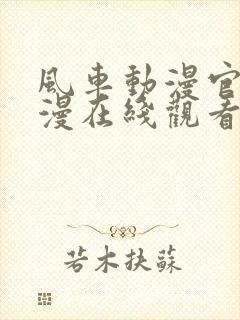 風車動漫官
漫在綫觀看
若木扶蘇